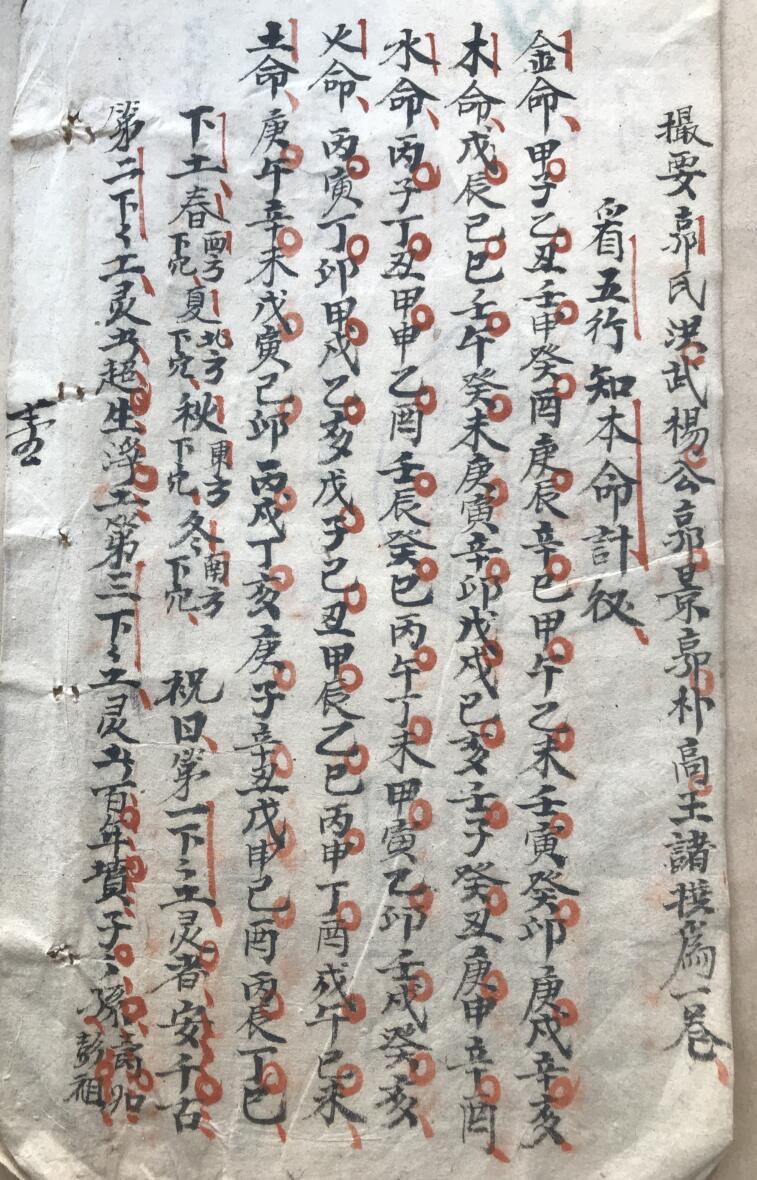 撮要郭氏洪武楊公郭景郭朴高王諸撰為一卷
看五行知本命計役
金命甲子乙丑壬申癸酉庚辰辛巳甲午乙未壬寅癸卯庚戌辛亥
木命戊辰己巳壬午癸未庚寅辛卯戊戌己亥壬子癸丑庚申辛酉
水命丙子丁丑甲申乙酉壬辰癸巳丙午丁未甲寅乙卯壬戌癸亥
火命丙寅丁卯甲戌乙亥戊子己丑甲辰乙巳丙申丁酉戊午己未
土命庚午辛未戊寅己卯丙戌丁亥庚子辛丑戊申己酉丙辰丁巳
下土春西方下穴夏北方下穴秋東方下穴冬南方下穴 祝曰第一下〻土灵者安千古
第二下〻土灵者超生淨土第三下〻土灵者百年墳子〻孫壽如彭祖